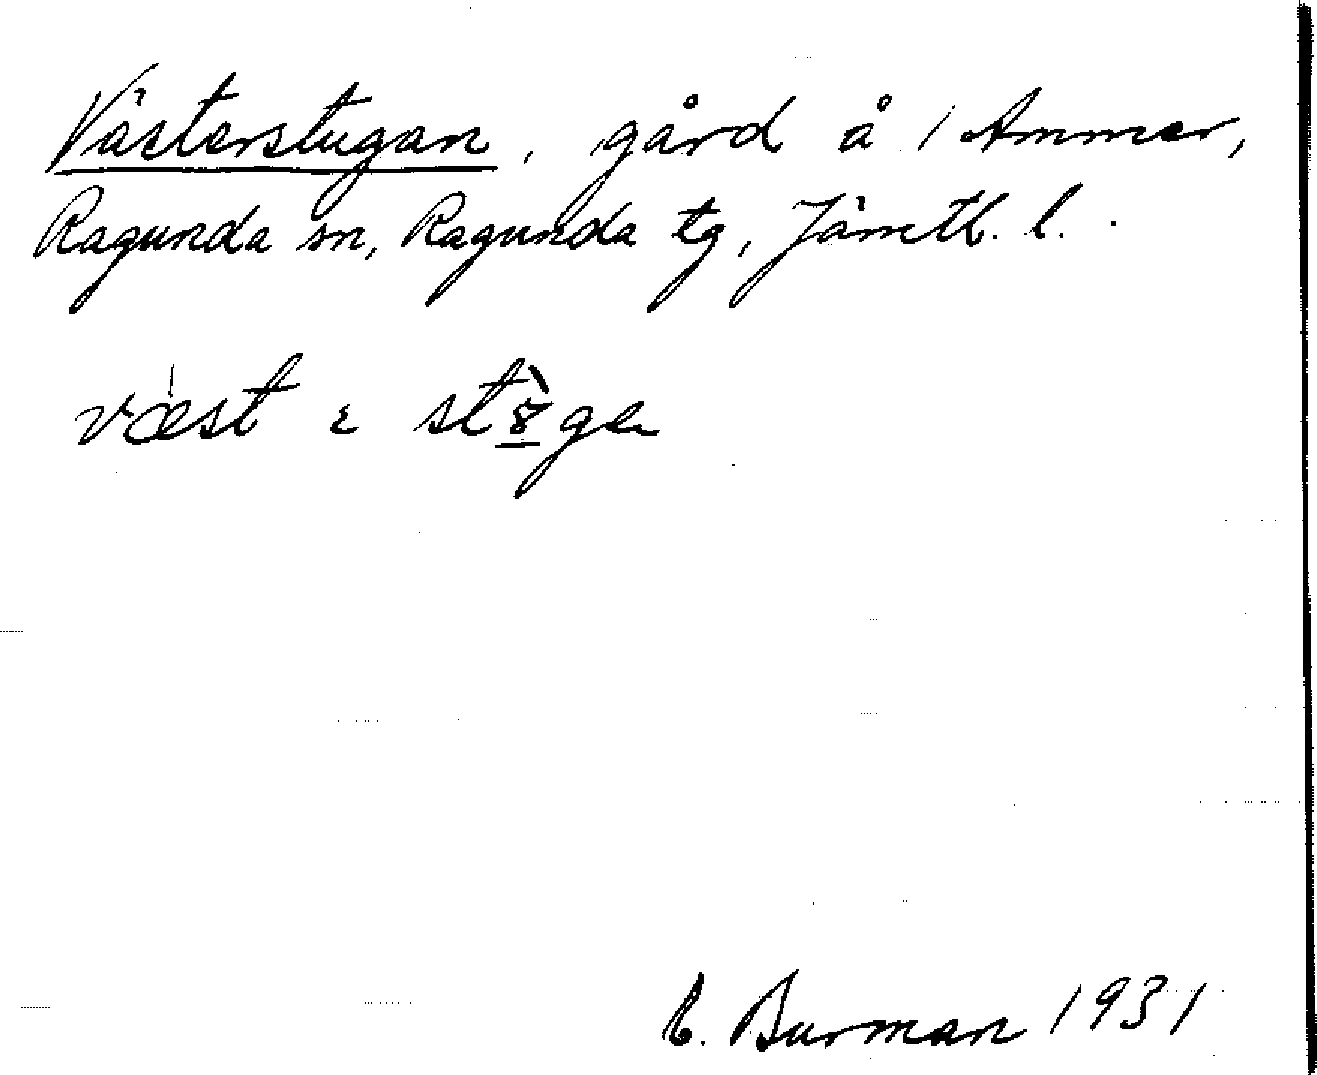 Västerstugan, gård å 1 Ammer,
Ragunda sn, Ragunda tg, Jämtl. l.
væst
C. Burman 1931